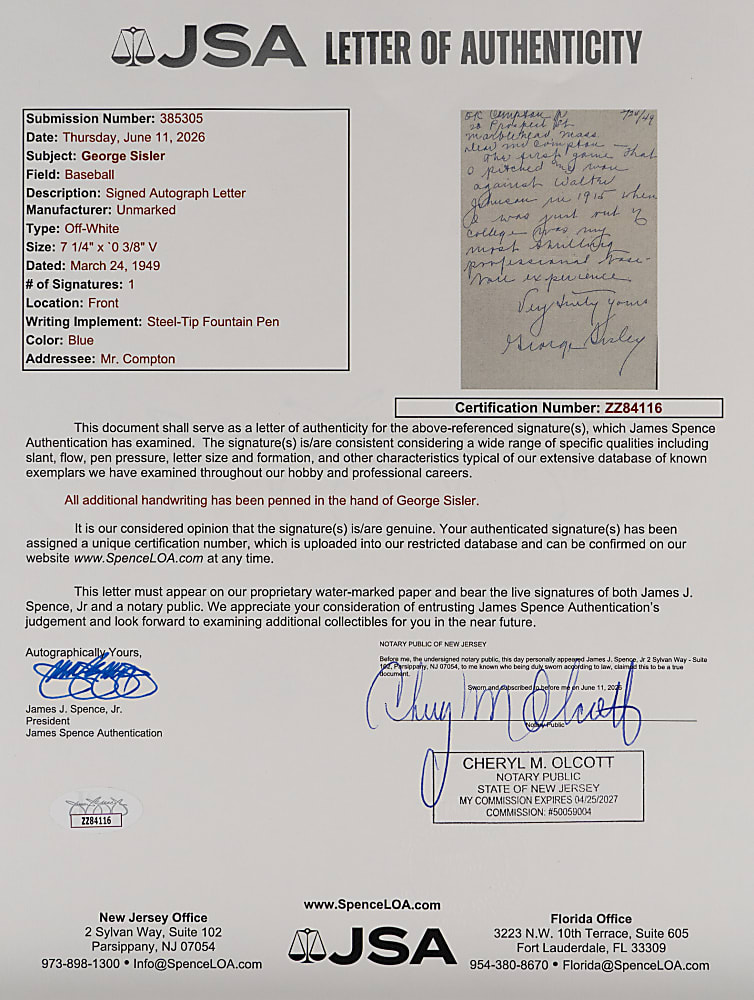 JSA LETTER OF AUTHENTICITY
Submission Number: 385305
Date: Thursday, June 11, 2026
Subject: George Sisler
Field: Baseball
Description: Signed Autograph Letter
Manufacturer: Unmarked
Type: Off-White
Size: 7 1/4" x `0 3/8" V
Dated: March 24, 1949
# of Signatures: 1
Location: Front
Writing Implement: Steel-Tip Fountain Pen
Color: Blue
Addressee: Mr. Compton
Compton Jr 3/24/49
20 Prospect St
Marblehead, Mass.
Dear Mr Compton –
The first game that
I pitched and won
against Walter
Johnson in 1915 when
I was just out of
college was my
most thrilling
professional base-
ball experience
Very truly yours
George Sisler
Certification Number: ZZ84116
This document shall serve as a letter of authenticity for the above-referenced signature(s), which James Spence
Authentication has examined. The signature(s) is/are consistent considering a wide range of specific qualities including
slant, flow, pen pressure, letter size and formation, and other characteristics typical of our extensive database of known
exemplars we have examined throughout our hobby and professional careers.
All additional handwriting has been penned in the hand of George Sisler.
It is our considered opinion that the signature(s) is/are genuine. Your authenticated signature(s) has been
assigned a unique certification number, which is uploaded into our restricted database and can be confirmed on our
website www.SpenceLOA.com at any time.
This letter must appear on our proprietary water-marked paper and bear the live signatures of both James J.
Spence, Jr and a notary public. We appreciate your consideration of entrusting James Spence Authentication's
judgement and look forward to examining additional collectibles for you in the near future.
Autographically Yours,
James J. Spence, Jr.
President
James Spence Authentication
NOTARY PUBLIC OF NEW JERSEY
Before me, the undersigned notary public, this day personally appeared James J. Spence, Jr 2 Sylvan Way - Suite
102, Parsippany, NJ 07054, to me known who being duly sworn according to law, claimed this to be a true
document.
Sworn and subscribed to before me on June 11, 2026
Cheryl M Olcott
Notary Public
CHERYL M. OLCOTT
NOTARY PUBLIC
STATE OF NEW JERSEY
MY COMMISSION EXPIRES 04/25/2027
COMMISSION: #50059004
ZZ84116
www.SpenceLOA.com
New Jersey Office
2 Sylvan Way, Suite 102
Parsippany, NJ 07054
973-898-1300 • Info@SpenceLOA.com
JSA
Florida Office
3223 N.W. 10th Terrace, Suite 605
Fort Lauderdale, FL 33309
954-380-8670 • Florida@SpenceLOA.com